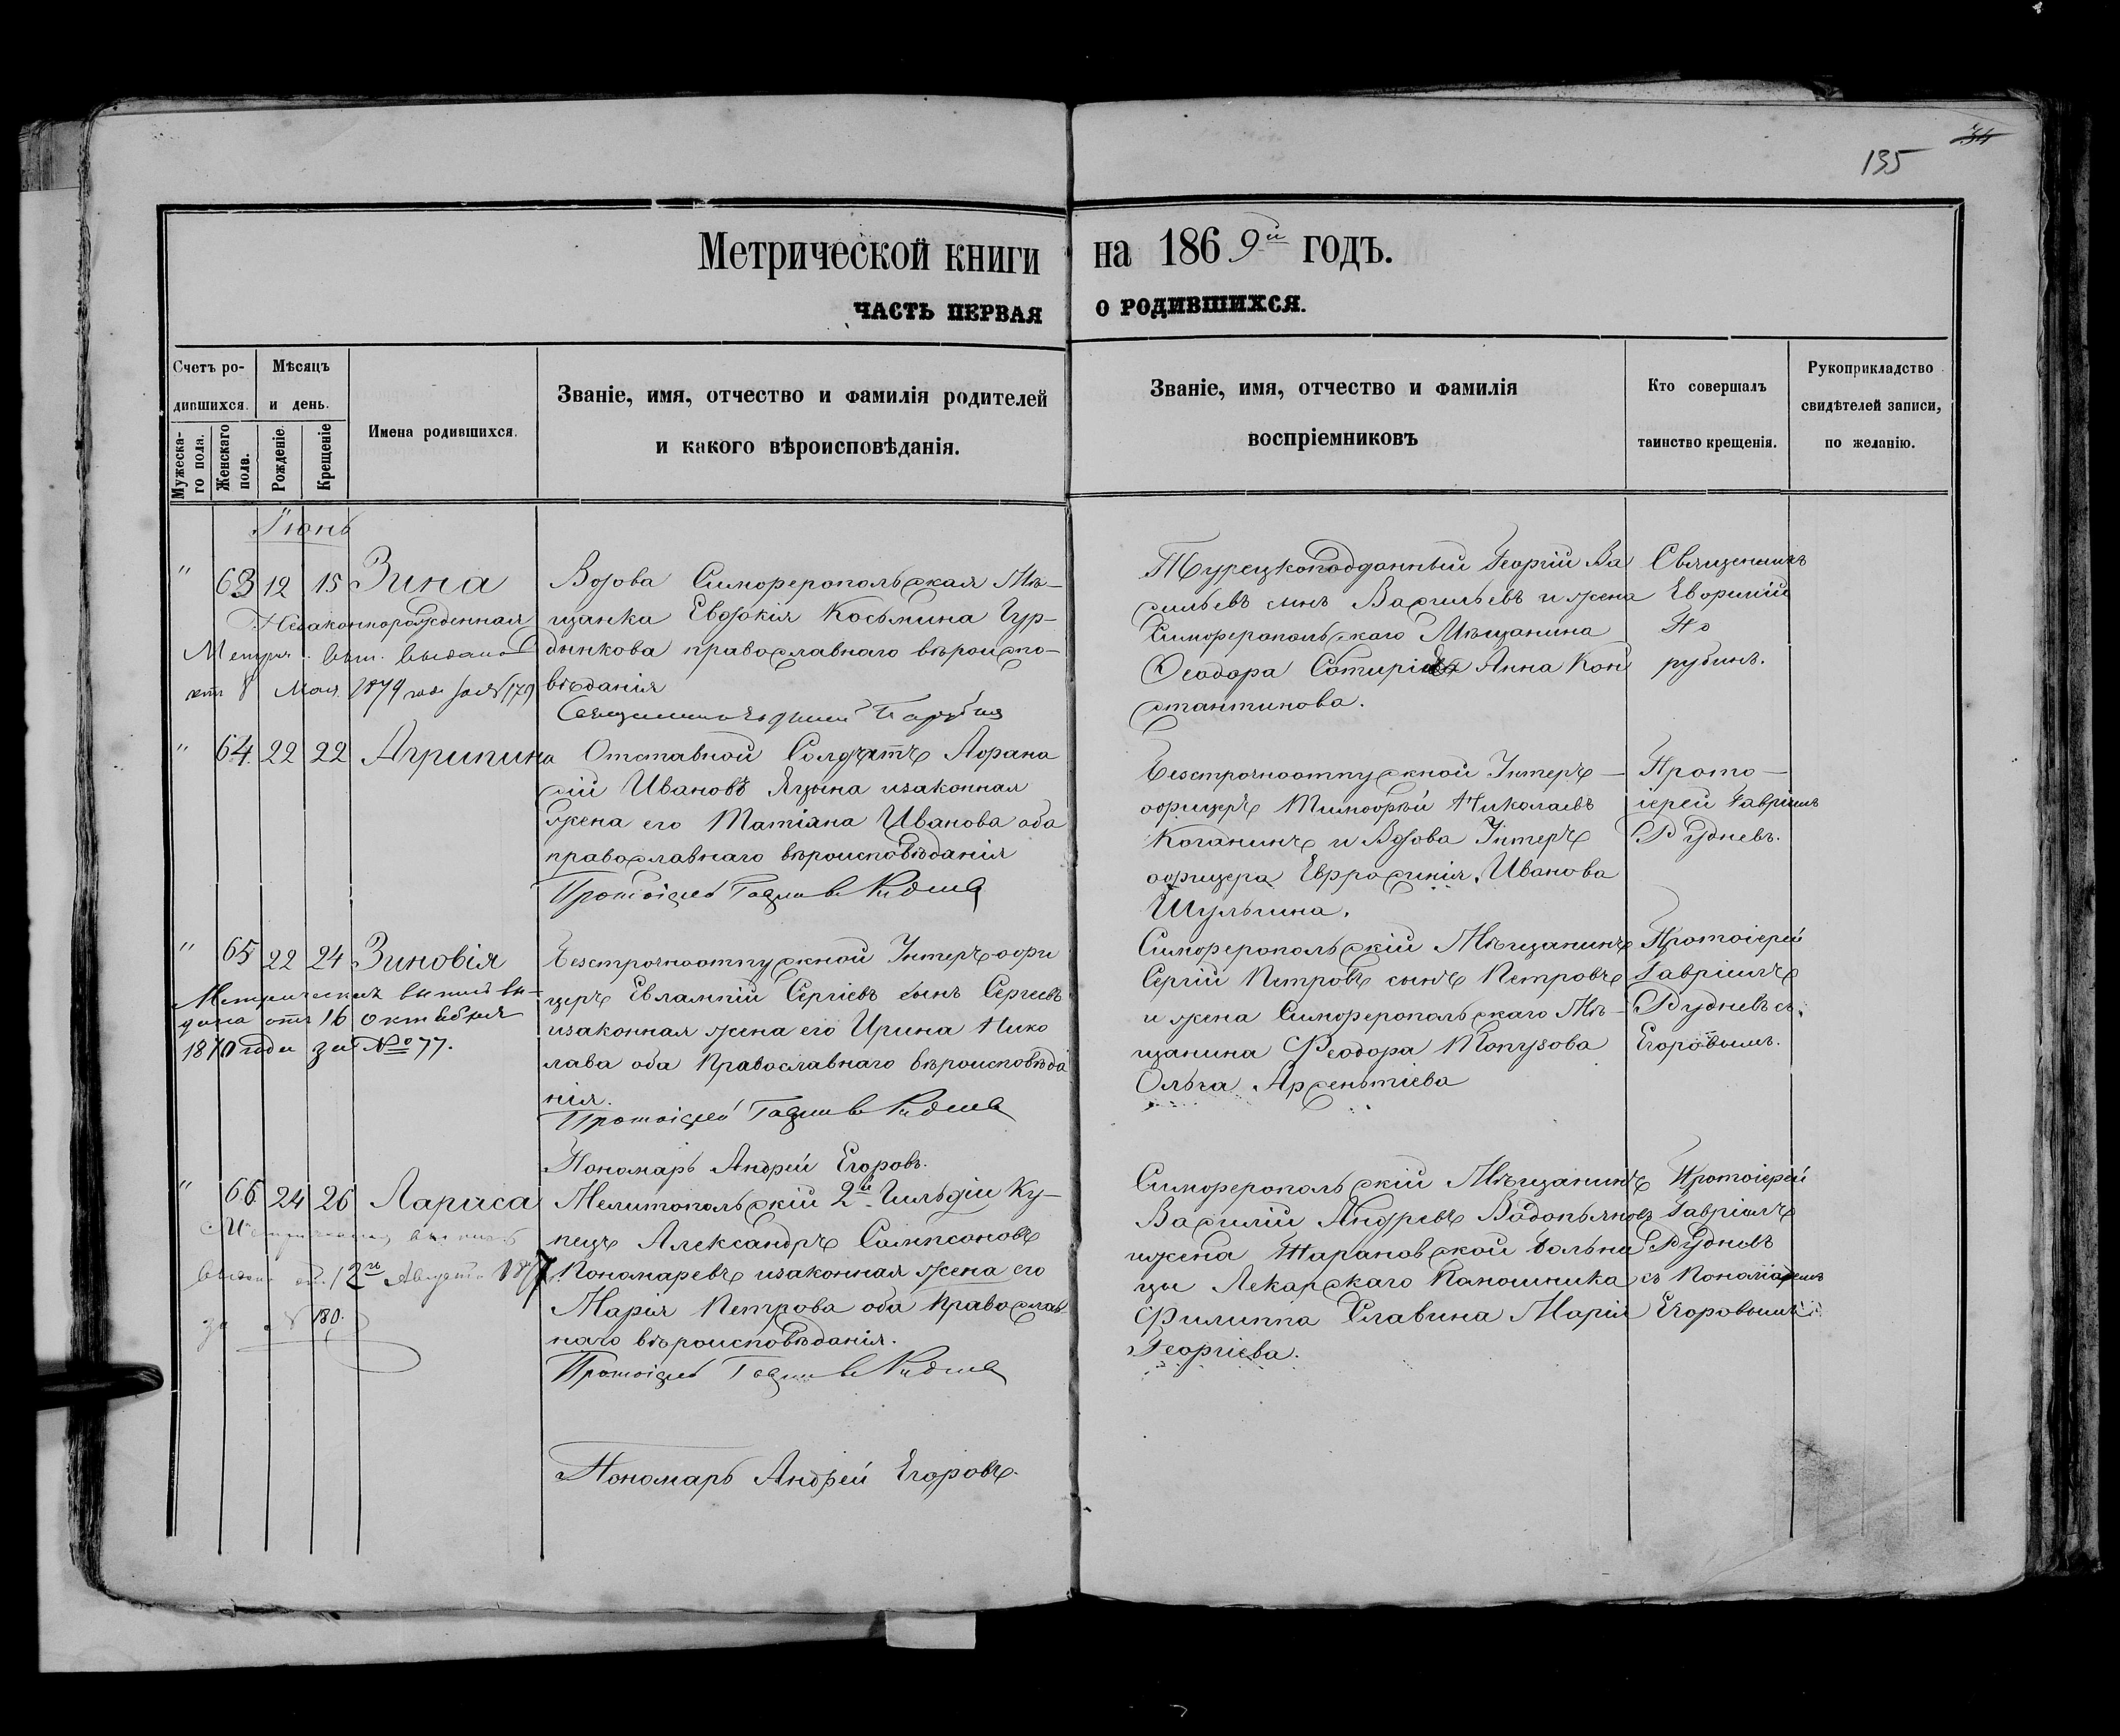 135
34
Метрической книги на 1869й годъ.
ЧАСТЬ ПЕРВАЯ О РОДИВШИХСЯ.
Счетъ родившихся.
Мужескаго пола.
Женскаго пола.
Мѣсяцъ и день.
Рожденіе.
Крещеніе
Имена родившихся.
Званіе, имя, отчество и фамилія родителей
и какого вѣроисповѣданія.
Званіе, имя, отчество и фамилія
воспріемниковъ
Кто совершалъ
таинство крещенія.
Рукоприкладство
свидѣтелей записи,
по желанію.
Іюнь
" 63 12 15 Зина
Незаконнорожденная
Метрич. вып. выдана
от 8 Мая 1879 года за № 179
Вдова Симферопольская Мѣ-
щанка Евдокія Косьмина
православнаго вѣроиспо-
вѣданія
Турецкоподданный Георгій Ва
сильевъ сынъ Васильевъ и жена
Симферопольскаго Мѣщанина
Ѳеодора Анна Кон
стантинова.
Священникъ
Евфимій
По
рубинъ.
" 64 22 22 Агрипина
Отставной Солдатъ Афана
сій Ивановъ Яцына изаконная
жена его Татіана Иванова оба
православнаго вѣроисповѣданія
Протоіерей Гавріилъ Рудневъ
Безсрочноотпускной Унтеръ-
офицеръ Тимофѣй Николаевъ
Коганинъ и Вдова Унтеръ
офицера Евфросинія Иванова
Шульгина.
Прото-
іерей Гавріилъ
Рудневъ.
" 65 22 24 Зиновія
Метрическая выпись вы-
дана отъ 16 октября
1870 года за № 77.
Безсрочноотпускной Унтеръ офи
церъ Евлампій Сергіевъ сынъ Сергеевъ
изаконная жена его Ирина Нико
лава оба Православнаго вѣроисповѣда
нія.
Протоіерей Гавріилъ Рудневъ
Пономарь Андрей Егоровъ.
Симферопольскій Мѣщанинъ
Сергій Петровъ сынъ Петровъ
и жена Симферопольскаго Мѣ-
щанина Феодора Топузова
Ольга Арсентіева
Протоіерей
Гавріилъ
Рудневъ съ.
Егоровымъ.
" 66 24 26 Лариса
Метрическая выпись
выдана от. 12го Августа 1877
за № 180.
Мелитопольскій 2й Гильдіи Ку-
пецъ Александръ Сампсоновъ
Пономаревъ изаконная жена его
Марія Петрова оба Православ
наго вѣроисповѣданія.
Протоіерей Гавріилъ Рудневъ
Пономарь Андрей Егоровъ.
Симферопольскій Мѣщанинъ
Василій Андревъ Вадопьяновъ
ижена Тарановской больни
цы Лекарскаго Помошника
Филиппа Славина Марія
Георгіева.
Протоіерей
Гавріилъ
Рудневъ
съ Пономаремъ
Егоровымъ